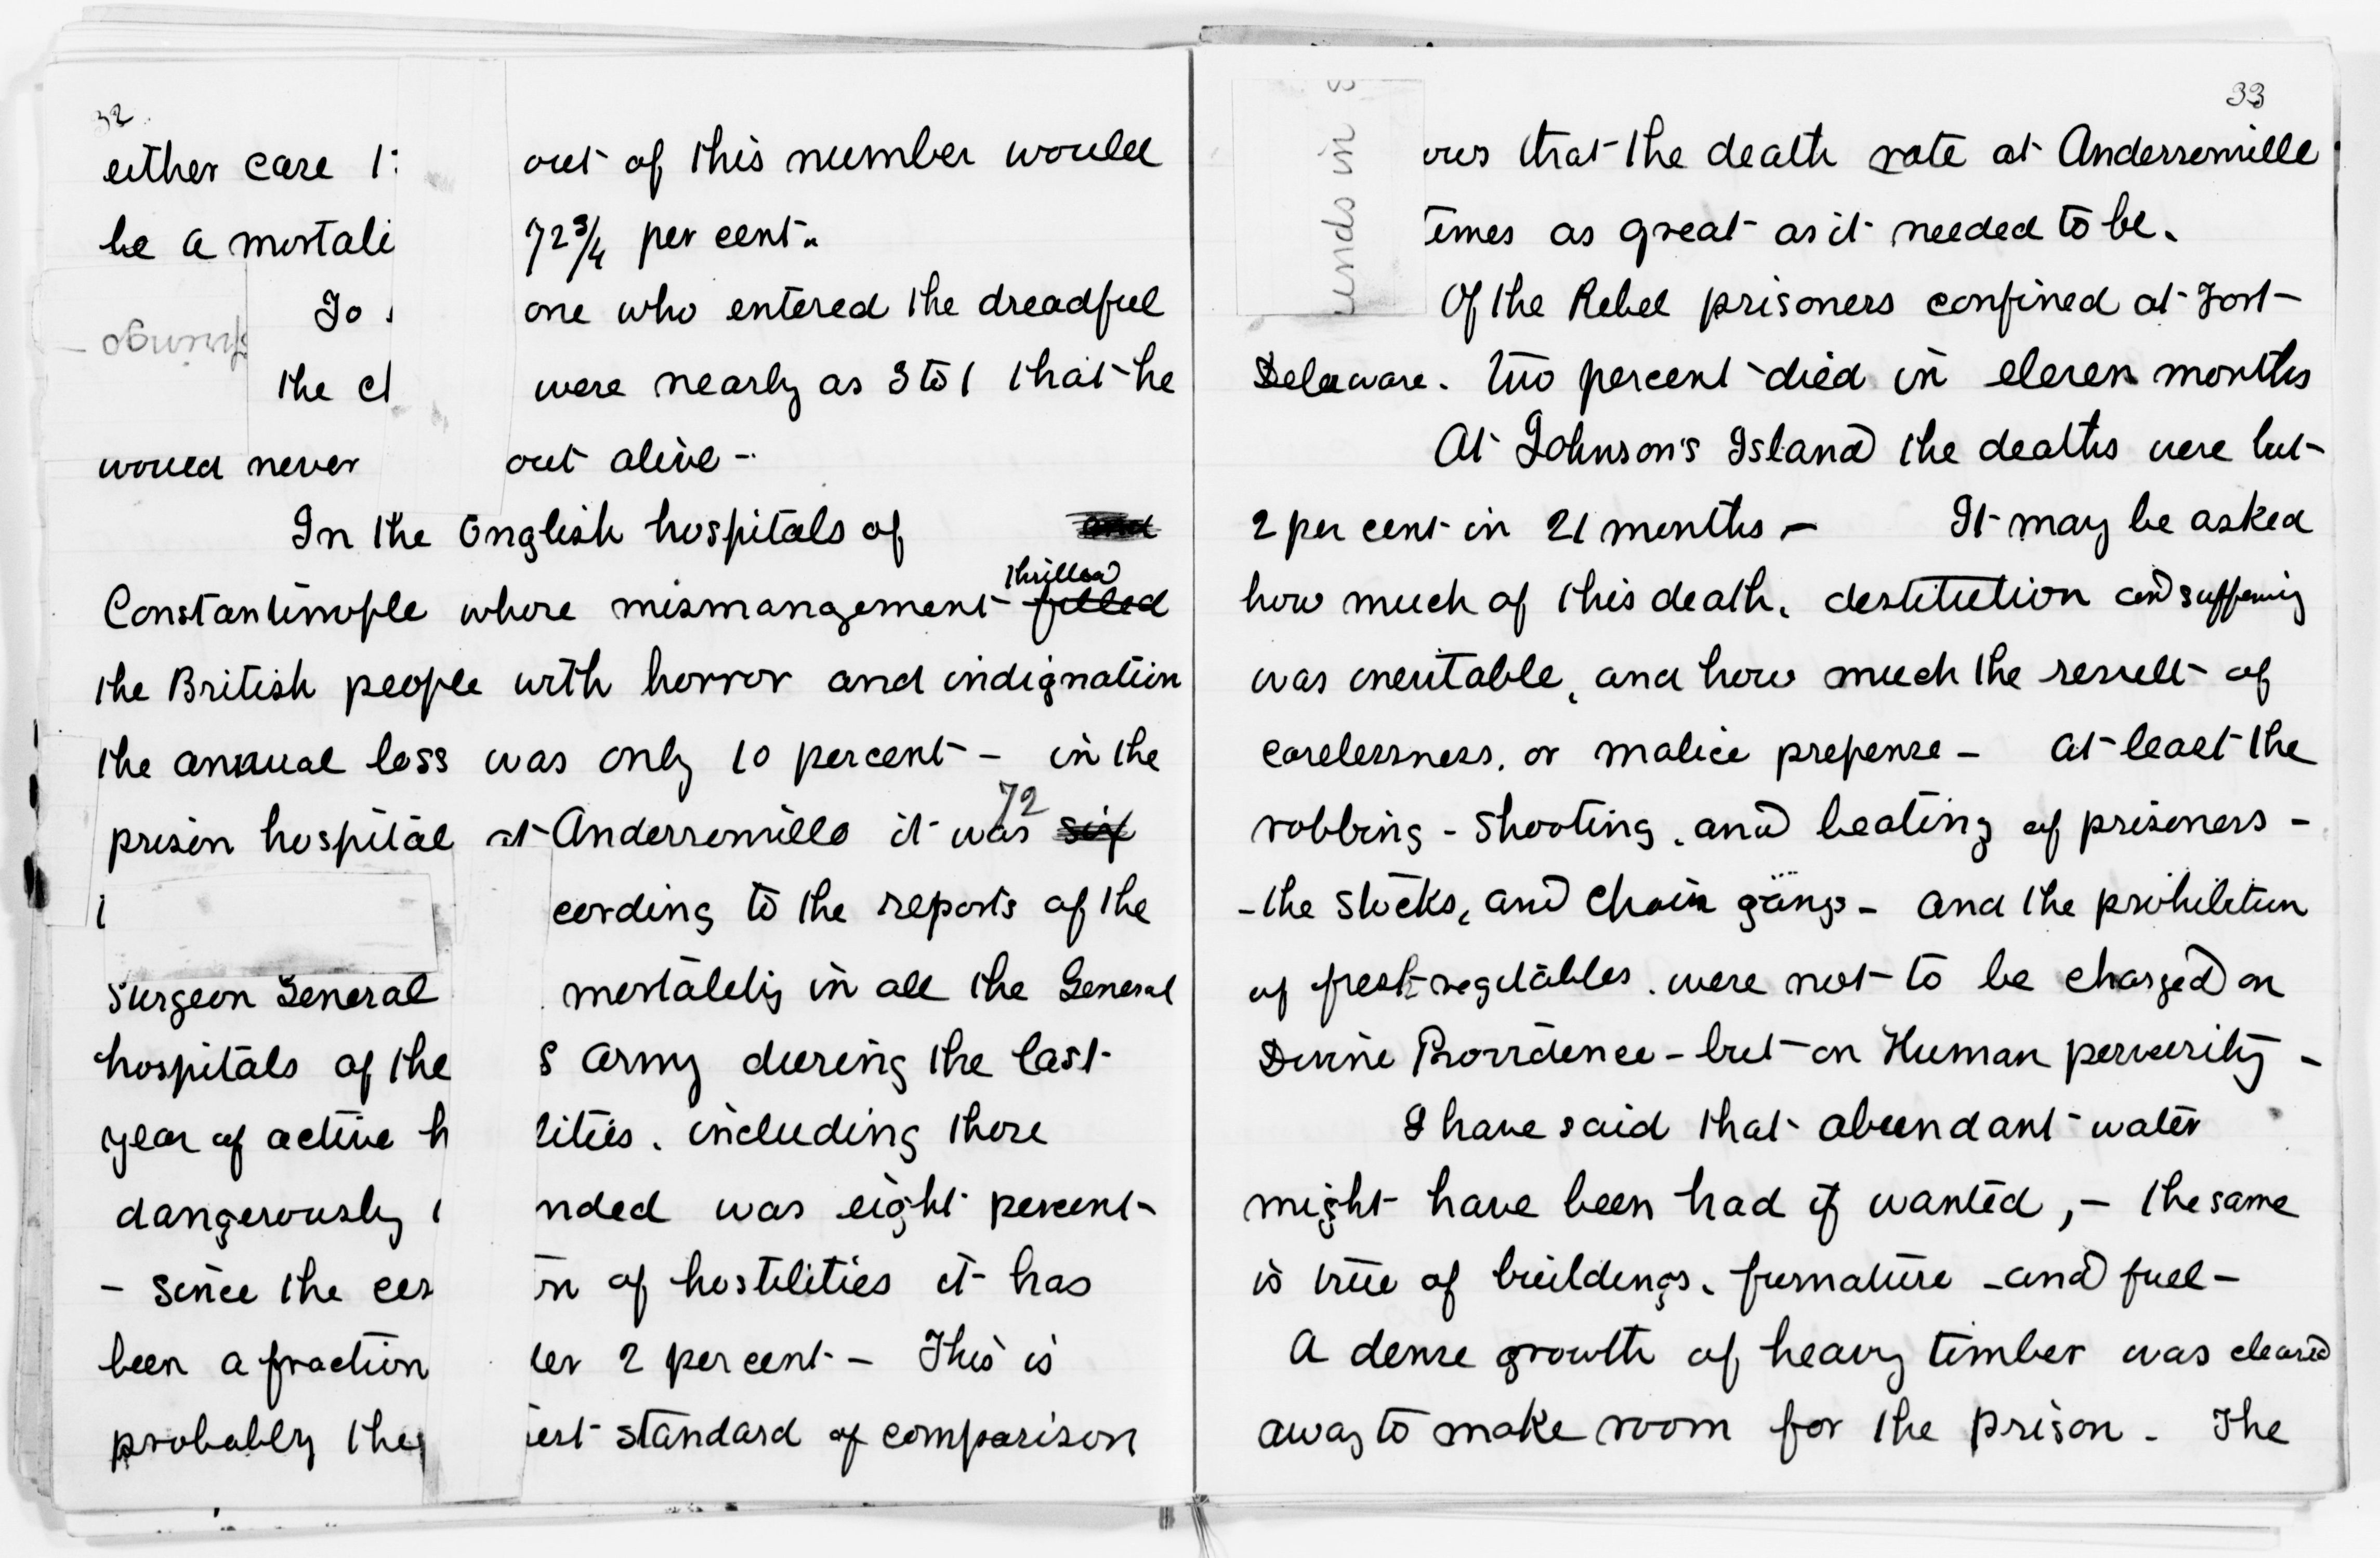 32.
either care 1 out of this number would
be a mortali 72 3/4 per cent.
To one who entered the dreadful
the ch were nearly as 3 to 1 that he
would never out alive -
In the English hospitals of
Constantinople where mismanagement thrilled filled
the British people with horror and indignation
the annual loss was only 10 percent - in the
prison hospital at Andersonville it was 72 six
cording to the reports of the
Surgeon General mortality in all the General
hospitals of the S Army during the last
year of active h lities. including those
dangerously nded was eight percent -
- since the ces on of hostilities it has
been a fraction der 2 per cent - This is
probably the est standard of comparison
33
ows that the death rate at Andersonville
times as great as it needed to be.
unds in
Of the Rebel prisoners confined at Fort
Delaware. two percent died in eleven months
At Johnson's Island the deaths were but
2 per cent in 21 months - It may be asked
how much of this death, destitution and suffering
was inevitable, and how much the result of
carelessness, or malice prepense - at least the
robbing - shooting, and beating of prisoners -
- the stocks, and chain gangs - and the prohibition
of fresh vegetables. were not to be charged on
Divine Providence - but on Human perversity -
I have said that abundant water
might have been had if wanted, - the same
is true of buildings, furnature - and fuel -
A dense growth of heavy timber was cleared
away to make room for the prison - The